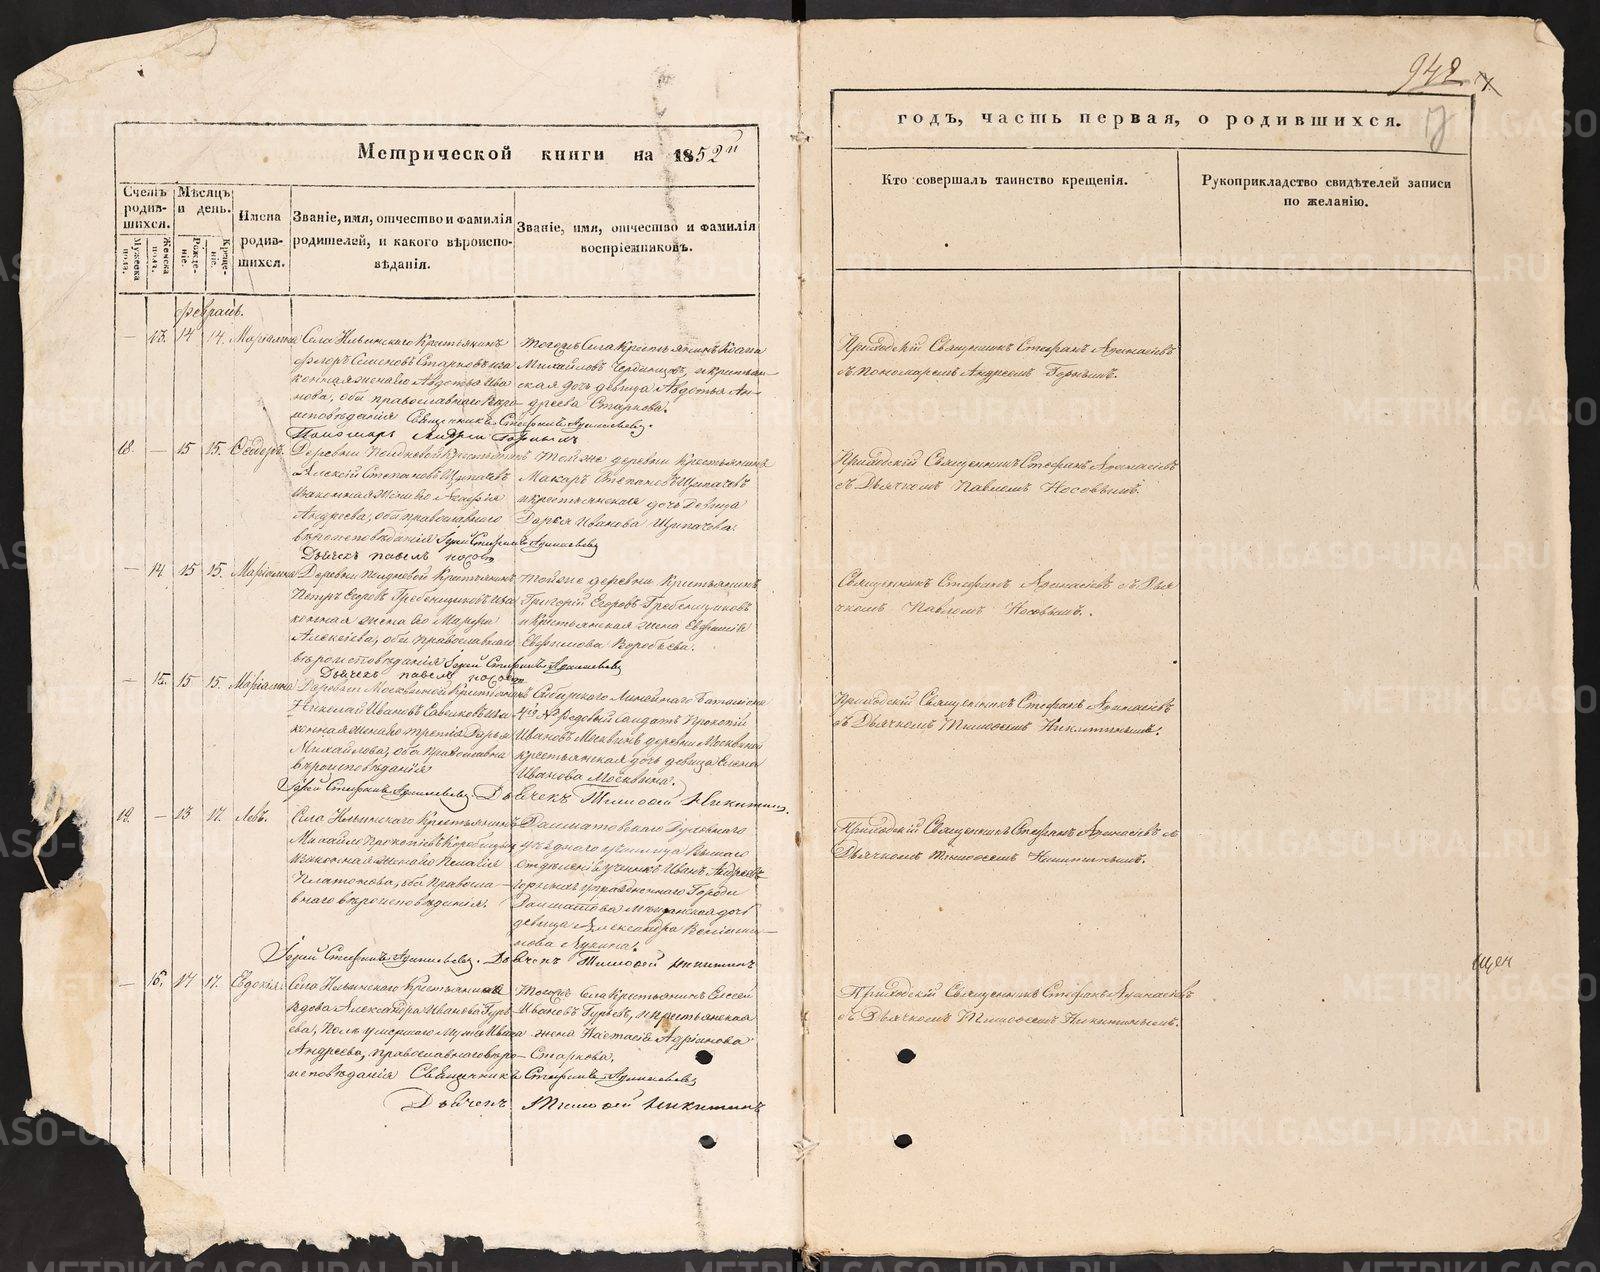 942
17
Метрической книги на 1852й
годъ, часть первая, о родившихся.
Счетъ родив-шихся.
Мужеска пола.
Женска пола.
Мѣсяцъ и день.
Рожде-ніе.
Креще-ніе.
Имена родив-шихся.
Званіе, имя, отчество и фамилія
родителей, и какого вѣроиспо-
вѣданія.
Званіе, имя, отчество и фамилія
воспріемниковъ.
Кто совершалъ таинство крещенія.
Рукоприкладство свидѣтелей записи
по желанію.
Февраль.
— 13. 14 14. Маріамна
Села Ильинскаго Крестьянинъ
Флоръ Семеновъ Старковъ и за
конная жена его Авдотья Ива
нова, оба православнаго вѣро-
исповѣданія Священникъ Стефанъ
Пономарь Андрей Горныхъ
Тогожъ Села Крестьянинъ
Михайловъ и крестьян-
ская дочь девица Авдотья Ан-
дреева Старкова.
Приходскій Священникъ Стефанъ
съ Пономаремъ Андреемъ Горныхъ.
18. — 15 15. Ѳеодоръ.
Деревни Крестьянинъ
Алексѣй Степановъ Щипачевъ
и законная жена его Агафія
Андреева, оба православнаго
вѣроисповѣданія Іерей Стефанъ
Дьячекъ Павелъ Носовъ
Тойже деревни Крестьянинъ
Макаръ Степановъ Щипачевъ
и крестьянская дочь девица
Дарья Иванова Щипачева.
Приходскій Священникъ Стефанъ
съ Дьячкомъ Павломъ Носовымъ.
— 14. 15 15. Маріамна
Деревни Крестьянинъ
Петръ Егоровъ Гребенщиковъ и за
конная жена его Марфа
Алексѣева, оба православнаго
вѣроисповѣданія Іерей Стефанъ
Дьячекъ Павелъ Носовъ
Тойже деревни Крестьянинъ
Григорій Егоровъ Гребенщиковъ
и Крестьянская жена
Евфимова Воробьева.
Священникъ Стефанъ съ Дья
чкомъ Павломъ Носовымъ.
— 15. 15 15. Маріамна
Деревни Москвиной Крестьянинъ
Николай Ивановъ и за
конная жена его Дарья
Михайлова, оба православна
вѣроисповѣданія
Іерей Стефанъ Дьячекъ Тимоѳей Никитинъ
Сибирскаго Линейнаго Баталіона
Рядовый солдатъ Прокопій
Ивановъ Москвинъ деревни Москвиной
крестьянская дочь девица Елена
Иванова Москвина.
Приходскій Священникъ Стефанъ
съ Дьячкомъ Тимоѳеемъ Никитинымъ.
19. — 13 17. Левъ.
Села Ильинскаго Крестьянинъ
Михайло Прокопіевъ
и законная жена его Пелагія
Платонова, оба Правосла-
внаго вѣроисповѣданія.
Іерей Стефанъ Дьячекъ Тимоѳей Никитинъ
Далматовскаго Духовнаго
уѣзднаго училища Высшаго
отдѣленія ученикъ Иванъ Андреевъ
Горныхъ упраздненнаго Города
Далматова Мѣщанская дочь
девица Александра Веніами-
нова Лукина.
Приходскій Священникъ Стефанъ съ
Дьячкомъ Тимоѳеемъ Никитинымъ.
— 16. 17 17. Евдокія.
Села Ильинскаго Крестьянская
вдова Александра Иванова Гурь
ева, послѣ умершаго мужа Ивана
Андреева, православнаго вѣро-
исповѣданія Священникъ Стефанъ
Дьячекъ Тимоѳей Никитинъ
Тогожъ Села Крестьянинъ Елесей
Ивановъ Гурьевъ, и крестьянская
жена Настасія Адріанова
Старкова.
Приходскій Священникъ Стефанъ
съ Дьячкомъ Тимоѳеемъ Никитинымъ.
METRIKI.GASO-URAL.RU